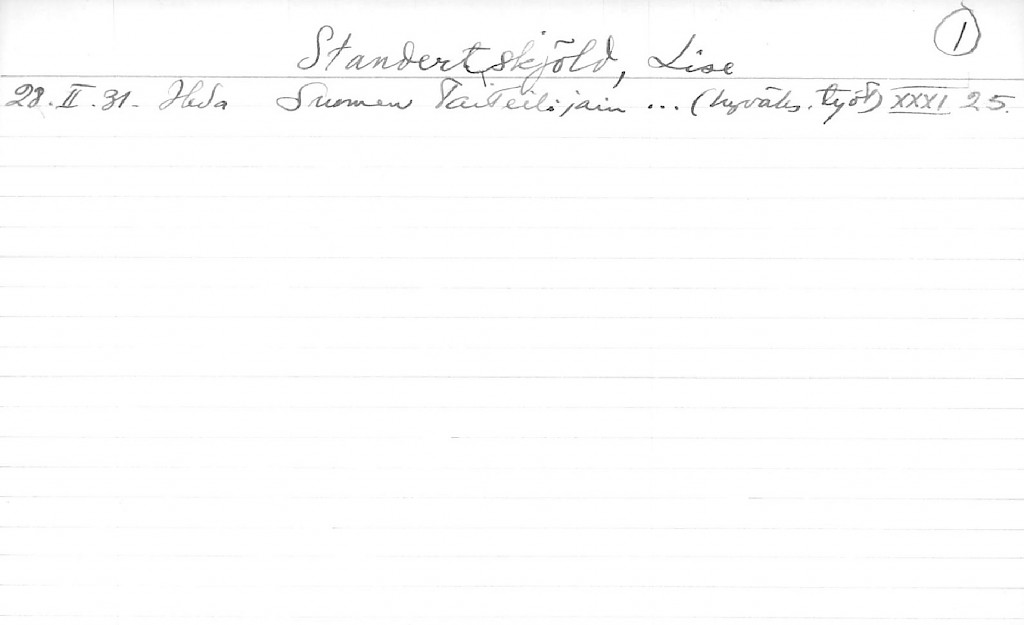 1
Standertskjöld, Lise
28. II. 31. Huda Suomen Taiteilijain ... (hyväks. työt) XXXI 25.